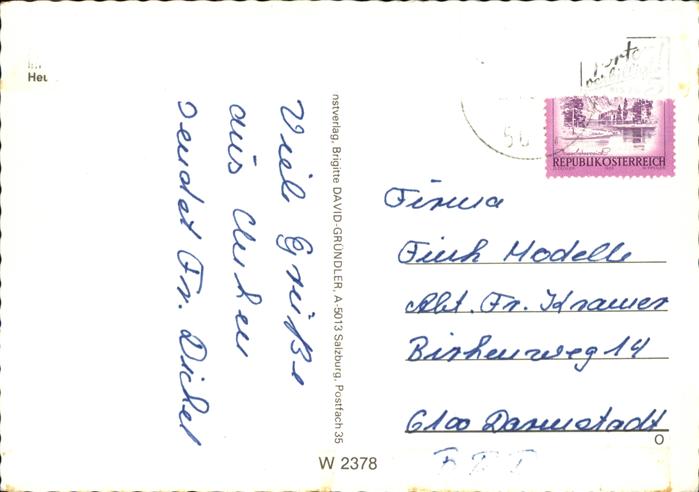 Heu
Viele Grüße
aus
sendet Fr. Dickel
nstverlag, Brigitte DAVID-GRÜNDLER, A-5013 Salzburg, Postfach 35
W 2378
REPUBLIK ÖSTERREICH
Firma
Fink Modelle
Abt. Fr. Kramer
Birkenweg 14
6100 Darmstadt